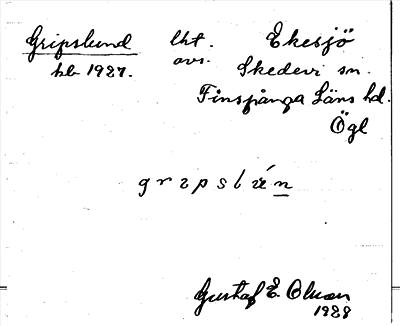 Gripslund lht. Ekesjö
hb 1927. avs. Skedevi sn.
Finspånga Läns hd.
Ögl
Gustaf E. Olson
1928